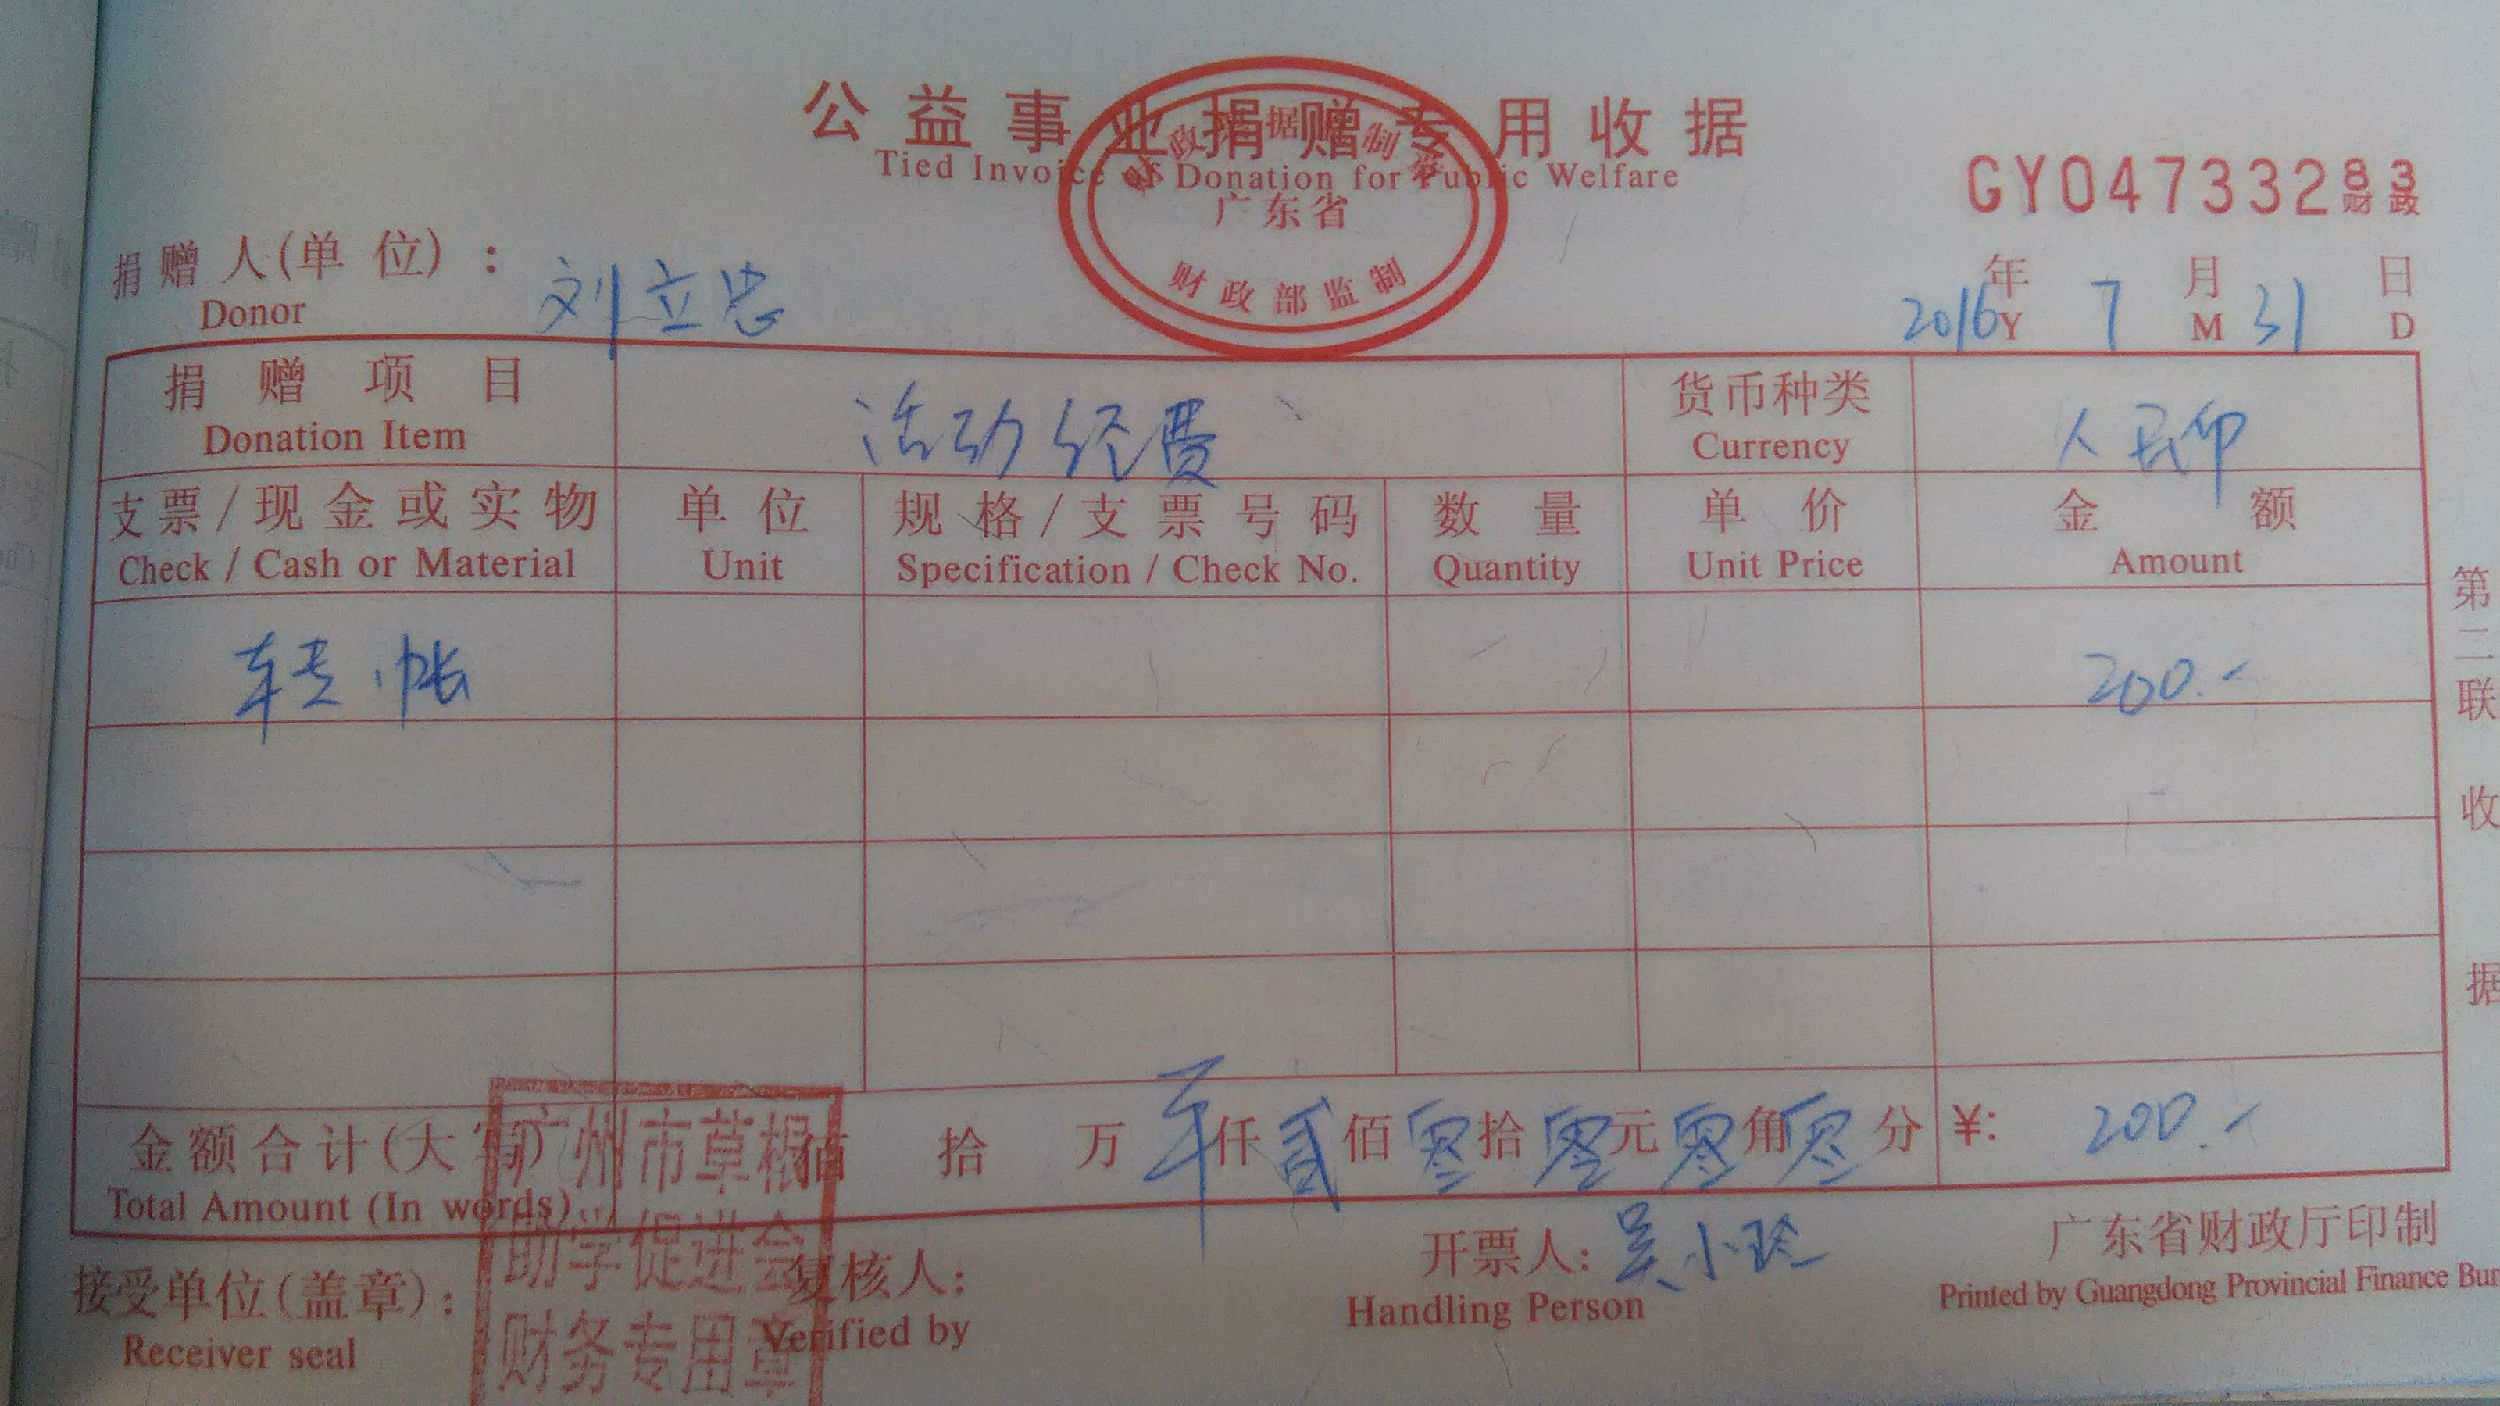 公益事业捐赠专用收据
Tied Invoice of Donation for Public Welfare
财政票据监制章
广东省
财政部监制
GY04733283
财政
捐赠人(单位)：刘立忠
Donor
2016年7月31日
Y M D
捐赠项目 活动经费 货币种类 人民币
Donation Item Currency
支票/现金或实物 单位 规格/支票号码 数量 单价 金额
Check / Cash or Material Unit Specification / Check No. Quantity Unit Price Amount
转帐 200.-
金额合计(大写) 佰 拾 万 仟贰佰零拾零元零角零分 ¥: 200.-
Total Amount (In words)
接受单位(盖章)： 复核人： 开票人：吴小玲 广东省财政厅印制
Receiver seal Verified by Handling Person Printed by Guangdong Provincial Finance Bur
广州市草根
助学促进会
财务专用章
第二联 收据